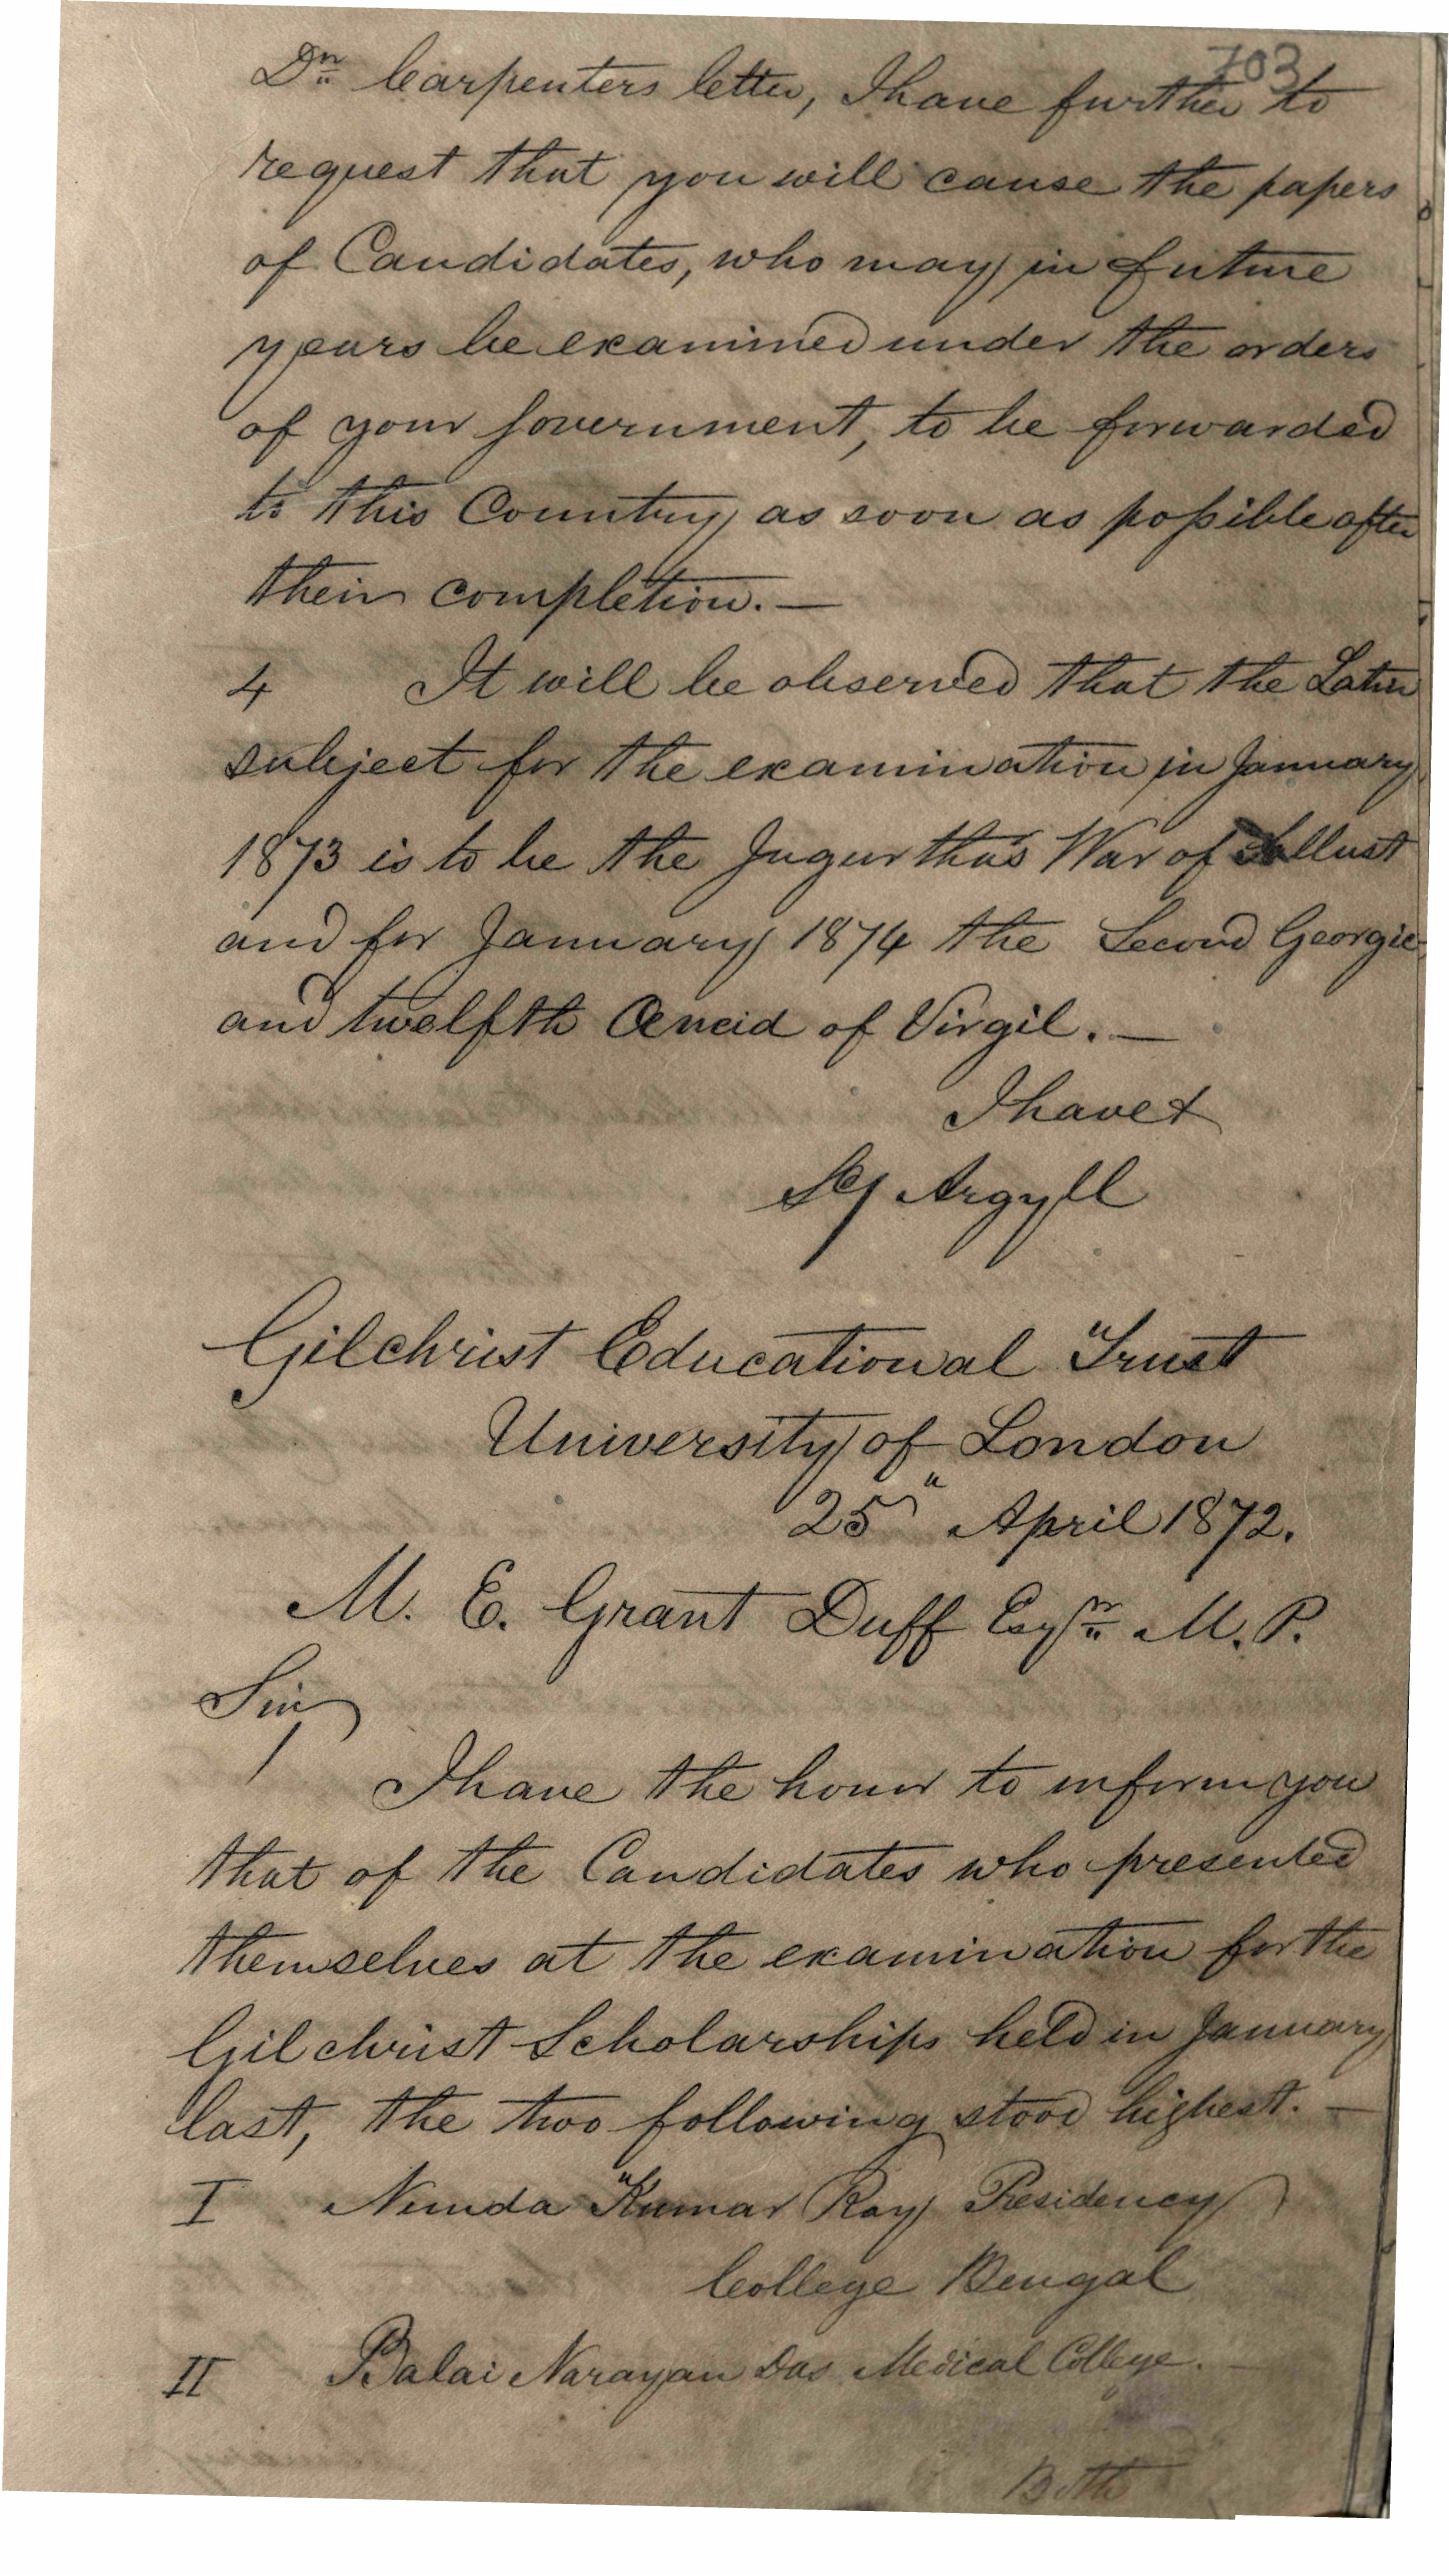 703
Dr Carpenters letter, I have further to
request that you will cause the papers
of Candidates, who may in future
years be examined under the orders
of your Government, to be forwarded
to this Country as soon as possible after
their completion. —
4 It will be observed that the Latin
subject for the examination in January
1873 is to be the Jugurtha's War of Sallust
and for January 1874 the Second Georgic
and twelfth Œneid of Virgil. —
I have &
Sd/ Argyll
Gilchrist Educational Trust
University of London
25" April 1872.
M. E. Grant Duff Esqre M. P.
Sir,
I have the honor to inform you
that of the Candidates who presented
themselves at the examination for the
Gilchrist Scholarships held in January
last, the two following stood highest. —
I Nunda Kumar Roy Presidency
College Bengal
II Balai Narayan Das Medical College. —
Both